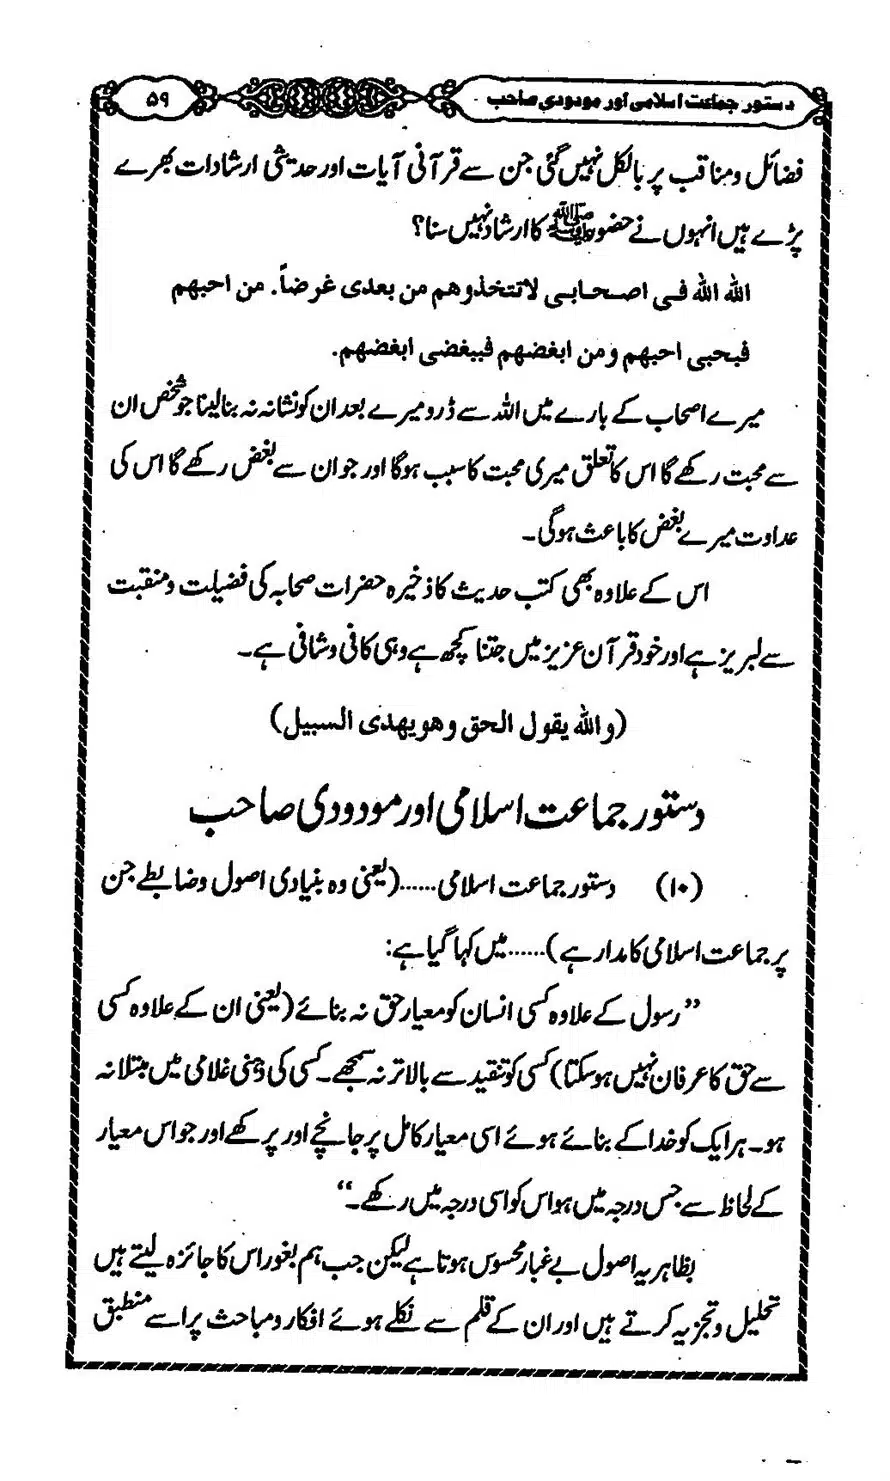 دستور جماعت اسلامی اور مودودی صاحب
۵۹
فضائل و مناقب پر بالکل نہیں گئی جن سے قرآنی آیات اور حدیثی ارشادات بھرے
پڑے ہیں انہوں نے حضور ﷺ کا ارشاد نہیں سنا؟
اللہ اللہ فی اصحابی لاتتخذوھم من بعدی غرضاً. من احبھم
فبحبی احبھم ومن ابغضھم فببغضی ابغضھم.
میرے اصحاب کے بارے میں اللہ سے ڈرو میرے بعد ان کو نشانہ نہ بنالینا جو شخص ان
سے محبت رکھے گا اس کا تعلق میری محبت کا سبب ہوگا اور جو ان سے بغض رکھے گا اس کی
عداوت میرے بغض کا باعث ہوگی۔
اس کے علاوہ بھی کتب حدیث کا ذخیرہ حضرات صحابہ کی فضیلت و منقبت
سے لبریز ہے اور خود قرآن عزیز میں جتنا کچھ ہے وہی کافی و شافی ہے۔
(واللہ یقول الحق وھو یھدی السبیل)
دستور جماعت اسلامی اور مودودی صاحب
(۱۰) دستور جماعت اسلامی......(یعنی وہ بنیادی اصول و ضابطے جن
پر جماعت اسلامی کا مدار ہے)......میں کہا گیا ہے:
”رسول کے علاوہ کسی انسان کو معیار حق نہ بنائے (یعنی ان کے علاوہ کسی
سے حق کا عرفان نہیں ہوسکتا) کسی کو تنقید سے بالاتر نہ سمجھے۔ کسی کی ذہنی غلامی میں مبتلا نہ
ہو۔ ہر ایک کو خدا کے بنائے ہوئے اسی معیار کامل پر جانچے اور پرکھے اور جو اس معیار
کے لحاظ سے جس درجہ میں ہو اس کو اسی درجہ میں رکھے۔“
بظاہر یہ اصول بے غبار محسوس ہوتا ہے لیکن جب ہم بغور اس کا جائزہ لیتے ہیں
تحلیل و تجزیہ کرتے ہیں اور ان کے قلم سے نکلے ہوئے افکار و مباحث پر اسے منطبق